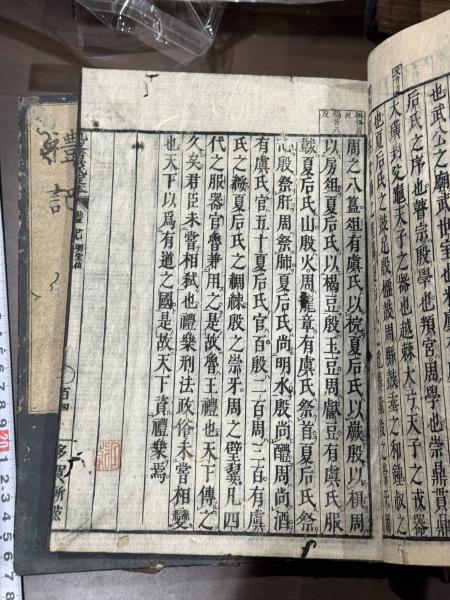 也武公之廟武世室也米
后氏之序也瞽宗殷學也頖宮周學也崇鼎貫鼎
大璜封父龜天子之器也越棘大弓天子之戎器
也夏后氏之鼓足殷楹鼓周縣鼓垂之和鍾叔之
周之八簋俎有虞氏以梡夏后氏以嶡殷以椇周
以房俎夏后氏以楬豆殷玉豆周獻豆有虞氏服
韍夏后氏山殷火周龍章有虞氏祭首夏后氏祭
心殷祭肝周祭肺夏后氏尚明水殷尚醴周尚酒
有虞氏官五十夏后氏官百殷二百周三百有虞
氏之綏夏后氏之綢練殷之崇牙周之璧翣凡四
代之服器官魯兼用之是故魯王禮也天下傳之
久矣君臣未嘗相弑也禮樂刑法政俗未嘗相變
也天下以爲有道之國是故天下資禮樂焉
禮記 明堂位 百四
禮記